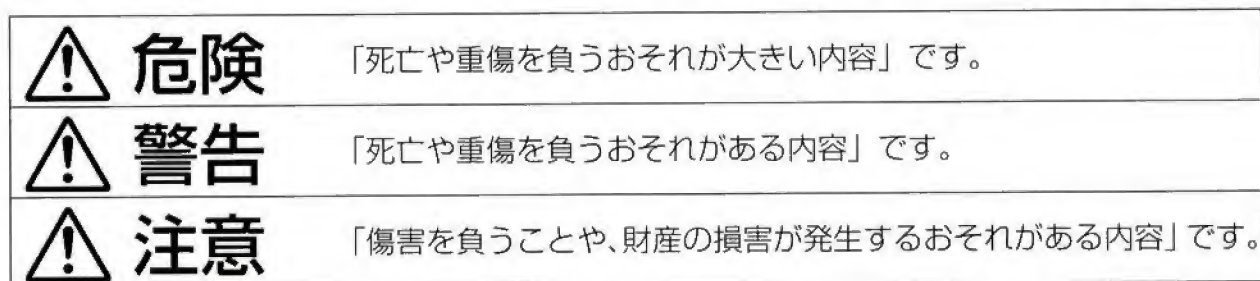 危険 「死亡や重傷を負うおそれが大きい内容」です。
警告 「死亡や重傷を負うおそれがある内容」です。
注意 「傷害を負うことや、財産の損害が発生するおそれがある内容」です。